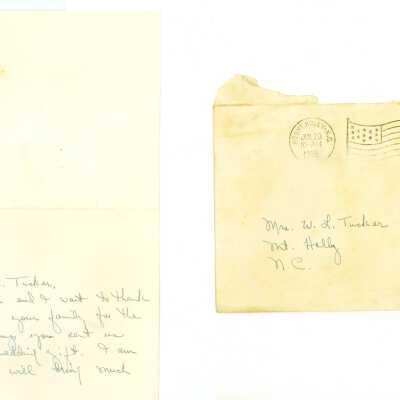 . Tucker,
and I want to thank
your family for the
you sent us
wedding gift. I am
will bring much
JUN 20
Mrs. W. L. Tucker
Mt. Holly
N. C.